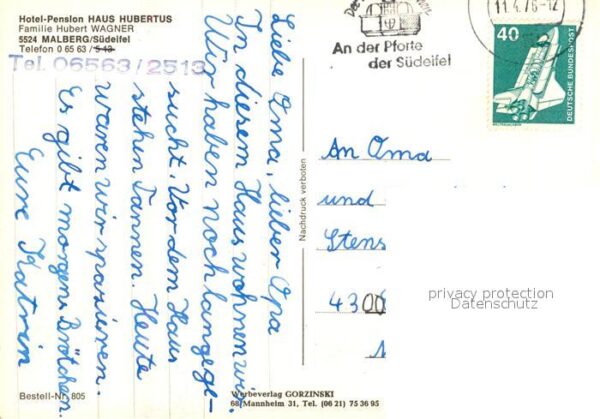 Hotel-Pension HAUS HUBERTUS
Familie Hubert WAGNER
5524 MALBERG/Südeifel
Telefon 0 65 63/5 13
Tel. 06563/2513
Liebe Oma, lieber Opa
In diesem Haus wohnen wir.
Wir haben noch lange ge-
sucht. Vor dem Haus
stehen Tannen. Heute
waren wir spazieren.
Es gibt morgens Brötchen.
Eure Katrin
Bestell-Nr. 805
Nachdruck verboten
Werbeverlag GORZINSKI
68 Mannheim 31, Tel. (06 21) 75 36 95
An der Pforte
der Südeifel
11.4.76-12
40
DEUTSCHE BUNDESPOST
An Oma
und
Stens
4300
privacy protection
Datenschutz